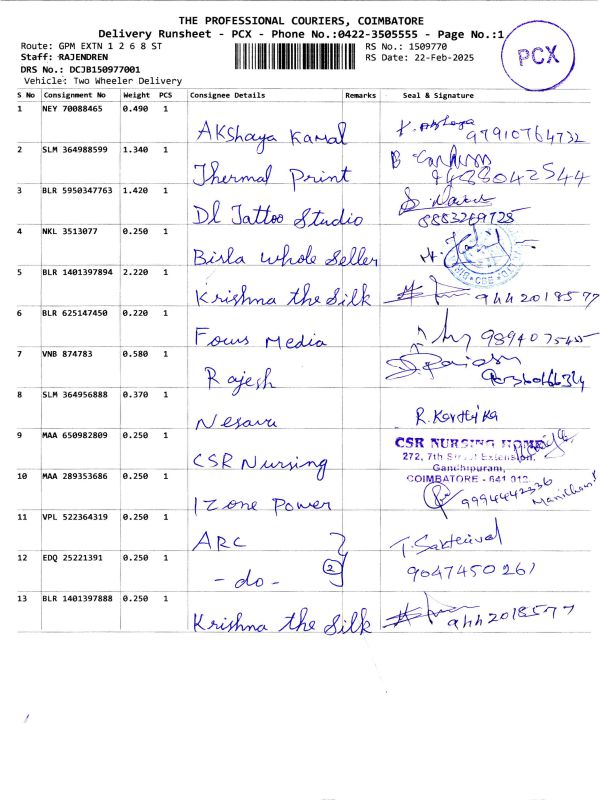 THE PROFESSIONAL COURIERS, COIMBATORE
Delivery Runsheet - PCX - Phone No.:0422-3505555 - Page No.:1
Route: GPM EXTN 1 2 6 8 ST RS No.: 1509770
Staff: RAJENDREN RS Date: 22-Feb-2025
DRS No.: DCJB150977001
Vehicle: Two Wheeler Delivery
PCX
S No Consignment No Weight PCS Consignee Details Remarks Seal & Signature
1 NEY 70088465 0.490 1 AKshaya Kamal 97910764732
2 SLM 364988599 1.340 1 Thermal Print
3 BLR 5950347763 1.420 1 Dl Tattoo Studio
4 NKL 3513077 0.250 1 Birla whole Seller
5 BLR 1401397894 2.220 1 Krishna the Silk 9442018577
6 BLR 625147450 0.220 1 Focus Media
7 VNB 874783 0.580 1 Rajesh
8 SLM 364956888 0.370 1 Nesavu R. Karthika
9 MAA 650982809 0.250 1 CSR Nursing CSR NURSING HOME
272, 7th Street Extension,
Gandhipuram,
COIMBATORE - 641 012.
10 MAA 289353686 0.250 1 I zone Power 9994442336 Manickam
11 VPL 522364319 0.250 1 ARC T. Sakthivel
12 EDQ 25221391 0.250 1 - do - 2 9047450261
13 BLR 1401397888 0.250 1 Krishna the Silk 9442018577